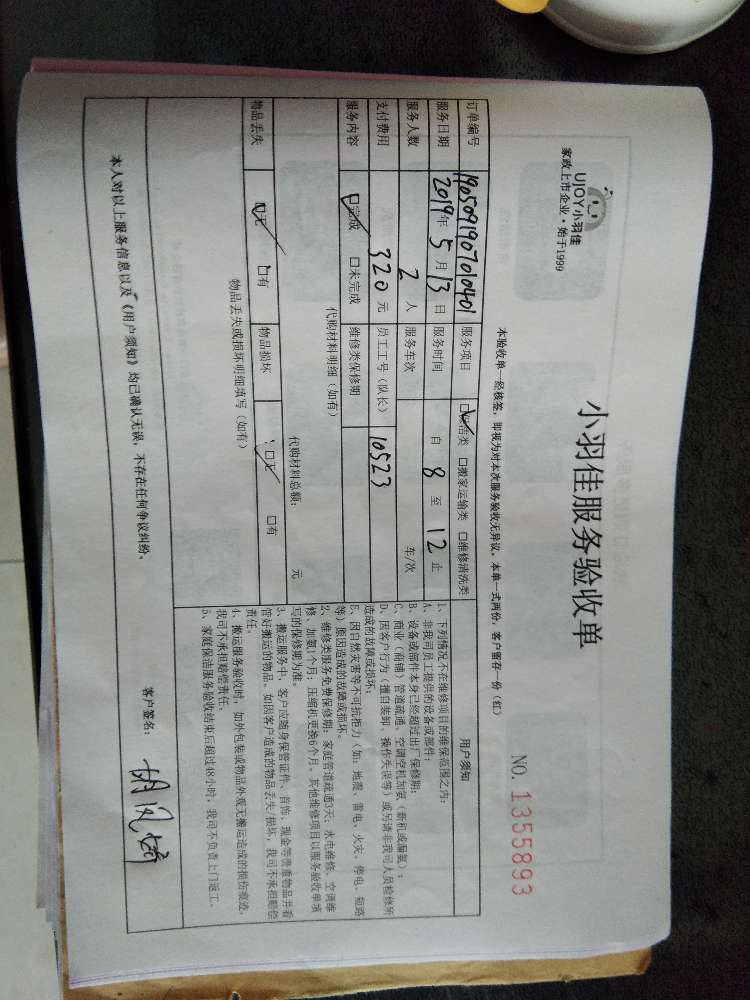 UJOY小羽佳
家政上市企业·始于1999
小羽佳服务验收单
NO. 1355893
本验收单一经核签，即视为对本次服务验收无异议。本单一式两份，客户留存一份（红）
订单编号 1905091907010401 服务项目 ☑保洁类 □搬家运输类 □维修清洗类
服务日期 2019年5月13日 服务时间 自 8 至 12 止
服务人数 2 人 服务车次 车/次
支付费用 320 元 员工工号（队长） 10523
服务内容 ☑完成 □未完成 维修类保修期
代购材料明细（如有）
代购材料总额： 元
物品丢失 ☑无 □有 物品损坏 ☑无 □有
物品丢失或损坏明细填写（如有）
用户须知
1、下列情况不在维修项目的维保范围之内：
A、非我司员工提供的设备或部件；
B、设备或部件本身已经超过出厂保修期；
C、商业（商铺）管道疏通、空调空机加氨（新机或漏氨）；
D、因客户行为（擅自装卸、操作失误等）或另请非我司人员检修所
造成的故障或损坏；
E、因自然灾害等不可抗拒力（如：地震、雷电、火灾、停电、短路
等）原因造成的故障或损坏。
2、维修类服务免费保修期：家庭管道疏通3天；水电维修、空调维
修、加氨1个月；压缩机更换6个月。其他维修项目以服务验收单填
写的保修期为准。
3、搬运服务中，客户应随身保管证件、首饰、现金等贵重物品并看
管好搬运的物品。如因客户造成的物品丢失/损坏，我司不承担赔偿
责任。
4、搬运服务验收时，如外包装或物品外观无搬运造成的损伤痕迹，
我司不承担赔偿责任。
5、家庭保洁服务验收结束后超过48小时，我司不负责上门返工。
本人对以上服务信息以及《用户须知》均已确认无误，不存在任何争议纠纷。
客户签名：